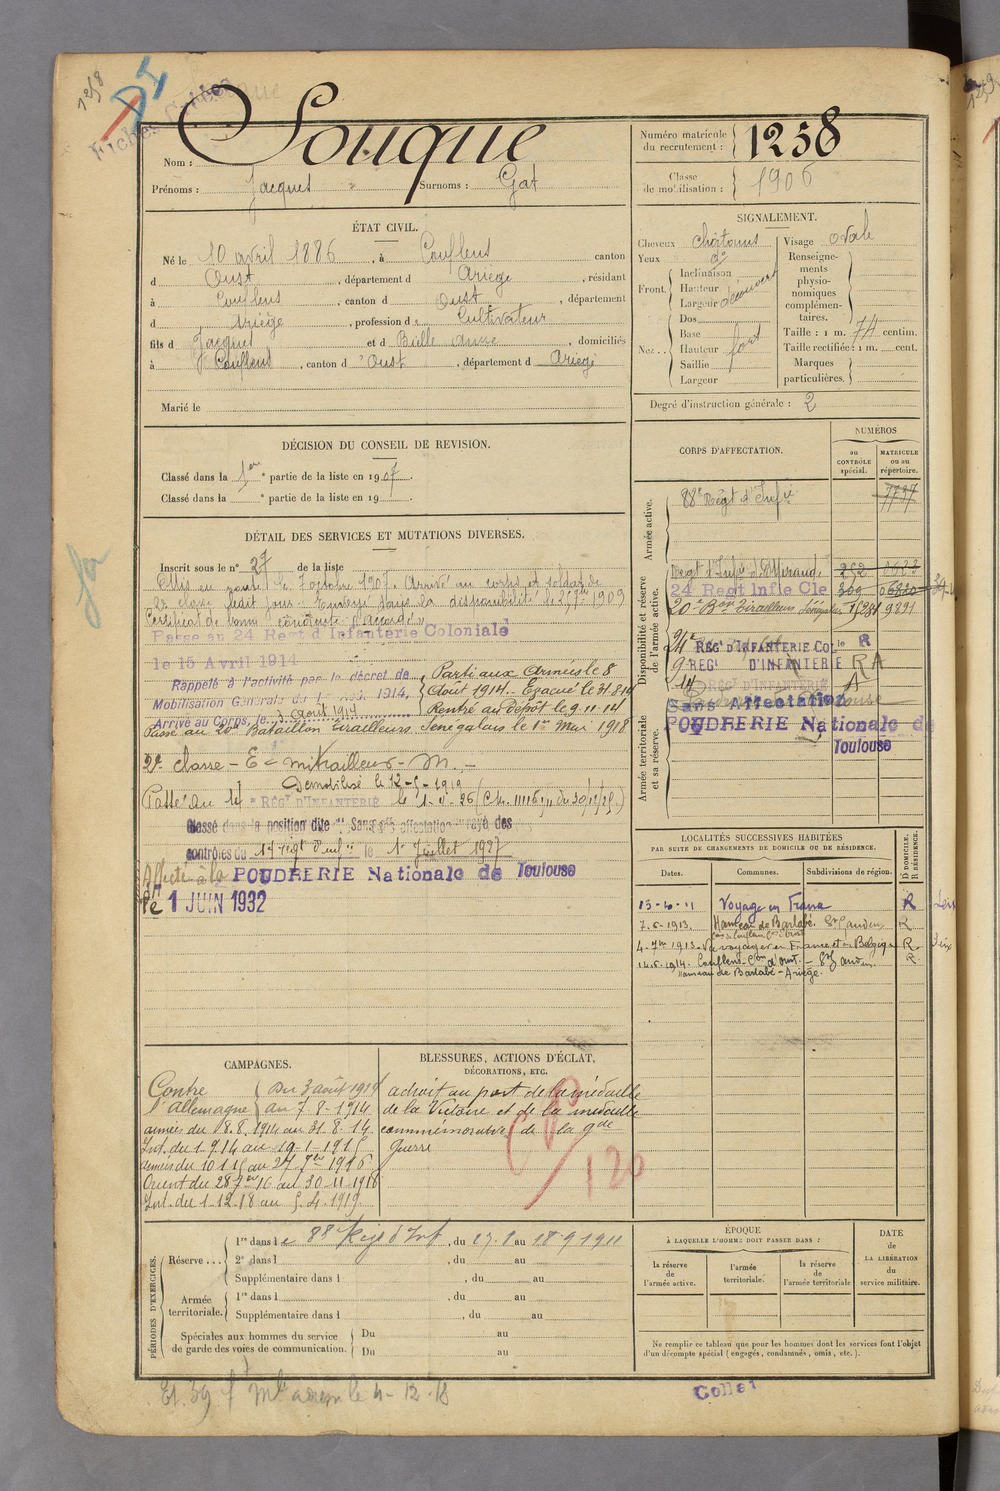 1258
Fiches
Nom : Souque
Prénoms : Jacques Surnoms : Gat
Numéro matricule du recrutement : 1258
Classe de mobilisation : 1906
ÉTAT CIVIL.
Né le 10 avril 1886, à Couflens canton
d Oust, département d Ariège, résidant
à Couflens, canton d Oust, département
d Ariège, profession d Cultivateur
fils d Jacques et d Bielle Anne, domiciliés
à Couflens, canton d'Oust, département d Ariège
Marié le
SIGNALEMENT.
Cheveux châtains
Yeux do
Front. Inclinaison
Hauteur
Largeur découvert
Nez.. Dos
Base
Hauteur fort
Saillie
Largeur
Visage ovale
Renseignements physionomiques complémentaires.
Taille : 1 m. 74 centim.
Taille rectifiée : 1 m. cent.
Marques particulières.
Degré d'instruction générale : 2
DÉCISION DU CONSEIL DE REVISION.
Classé dans la 1ere partie de la liste en 1907.
Classé dans la e partie de la liste en 19
DÉTAIL DES SERVICES ET MUTATIONS DIVERSES.
Inscrit sous le n° 27 de la liste
Mis en route le 7 octobre 1907. Arrivé au corps et soldat de
2e classe ledit jour. Envoyé dans la disponibilité le 25 1909
Certificat de bonne conduite "Accordé"
Passé au 24 Regt d'Infanterie Coloniale
le 15 Avril 1914
Rappelé à l'activité par le décret de
Mobilisation Générale du 1er Août 1914,
Arrivé au Corps, le 3 août 1914
Parti aux Armées le 8
Août 1914. Evacué le 31.8.14
Rentré au Dépôt le 9.11.14
Passé au 20e Bataillon Tirailleurs Sénégalais le 1er Mai 1918
2e classe - Ee mitrailleur - M. -
Démobilisé le 12-5-1919
Passé au 14e RÉGt D'INFANTERIE le 1-5-26 (
Classé dans la position dite "Sans affectation" rayé des
contrôles du 14e régt d'infie le 1er Juillet 1927
Affecté à la POUDRERIE Nationale de Toulouse
le 1 JUIN 1932
CORPS D'AFFECTATION.
NUMÉROS
au CONTRÔLE spécial.
MATRICULE ou au répertoire.
Armée active.
88e Régt d'Infie
7737
Disponibilité et réserve de l'armée active.
Regt d'Infie de Mirande 252
24 Regt Infie Cle 309
20e Bon Tirailleurs Sénégalais 9891
24e RÉGt D'INFANTERIE COLle R
9 RÉGt D'INFANTERIE RA
14 RÉGt D'INFANTERIE A
Armée territoriale et sa réserve.
Sans Affectation
POUDRERIE Nationale de
Toulouse
LOCALITÉS SUCCESSIVES HABITÉES
PAR SUITE DE CHANGEMENTS DE DOMICILE OU DE RÉSIDENCE.
Dates. Communes. Subdivisions de région. D DOMICILE. R RÉSIDENCE.
13-6-11 Voyage en France R
7.6-1913. Hameau de Barlabé. St Gaudens R
4-7bre 1913. Va voyager en France et en Belgique R.
14.6.1914. Couflens-Con d'Oust. - St Gaudens. R
Hameau de Barlabé - Ariège.
CAMPAGNES.
Contre l'Allemagne
Du 3 août 1914
au 7-8-1914.
armées du 8.8.1914 au 31-8-14
Int. du 1 9 14 au 19-1-1915
armées du 10 1 15 au 27 7bre 1916
Orient du 28 7bre 16 au 30-11-1918
Int. du 1-12-18 au 5-4-1919
BLESSURES, ACTIONS D'ÉCLAT,
DÉCORATIONS, ETC.
a droit au port de la médaille
de la Victoire et de la médaille
commémorative de la gde
Guerre
120
PÉRIODES D'EXERCICES.
Réserve...
1re dans le 88e Reg d'Inf, du 27.8 au 18 9 1911
2e dans l , du au
Supplémentaire dans l , du au
Armée territoriale.
1re dans l , du au
Supplémentaire dans l , du au
Spéciales aux hommes du service de garde des voies de communication.
Du au
Du au
ÉPOQUE
À LAQUELLE L'HOMME DOIT PASSER DANS :
la réserve de l'armée active.
l'armée territoriale.
la réserve de l'armée territoriale
DATE de LA LIBÉRATION du service militaire.
Ne remplir ce tableau que pour les hommes dont les services font l'objet
d'un décompte spécial (engagés, condamnés, omis, etc.).
le 4-12-18
Collet